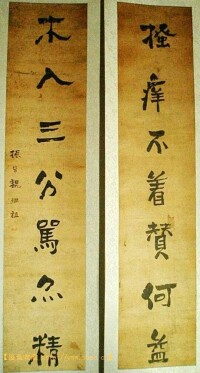 搔痒不着贊何益
木入三分罵亦精